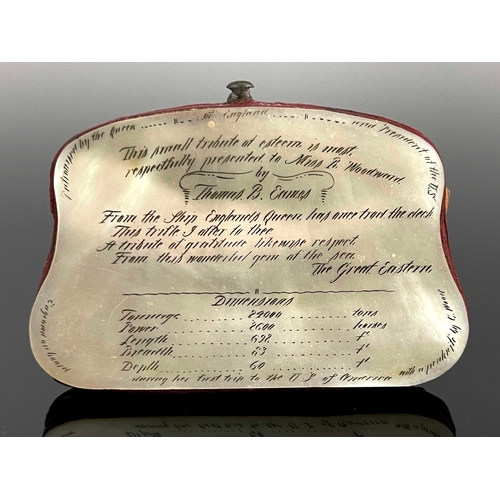 Patronized by the Queen ........ of England ........ and President of the U.S.
This small tribute of esteem is most
respectfully presented to Miss R. Woodward
by
Thomas B. Eames
From the Ship Englands Queen, has once trod the deck
This trifle I offer to thee
A tribute of gratitude likewise respect
From this wonderful gem of the sea.
The Great Eastern.
Dimensions
Tonnage ........ 22000 ........ tons
Power ........ 2600 ........ horses
Length ........ 692 ........ f'
Breadth ........ 83 ........ f'
Depth ........ 60 ........ f'
Engraved on board
during her first trip to the U S of America
with a penknife by C. Wood